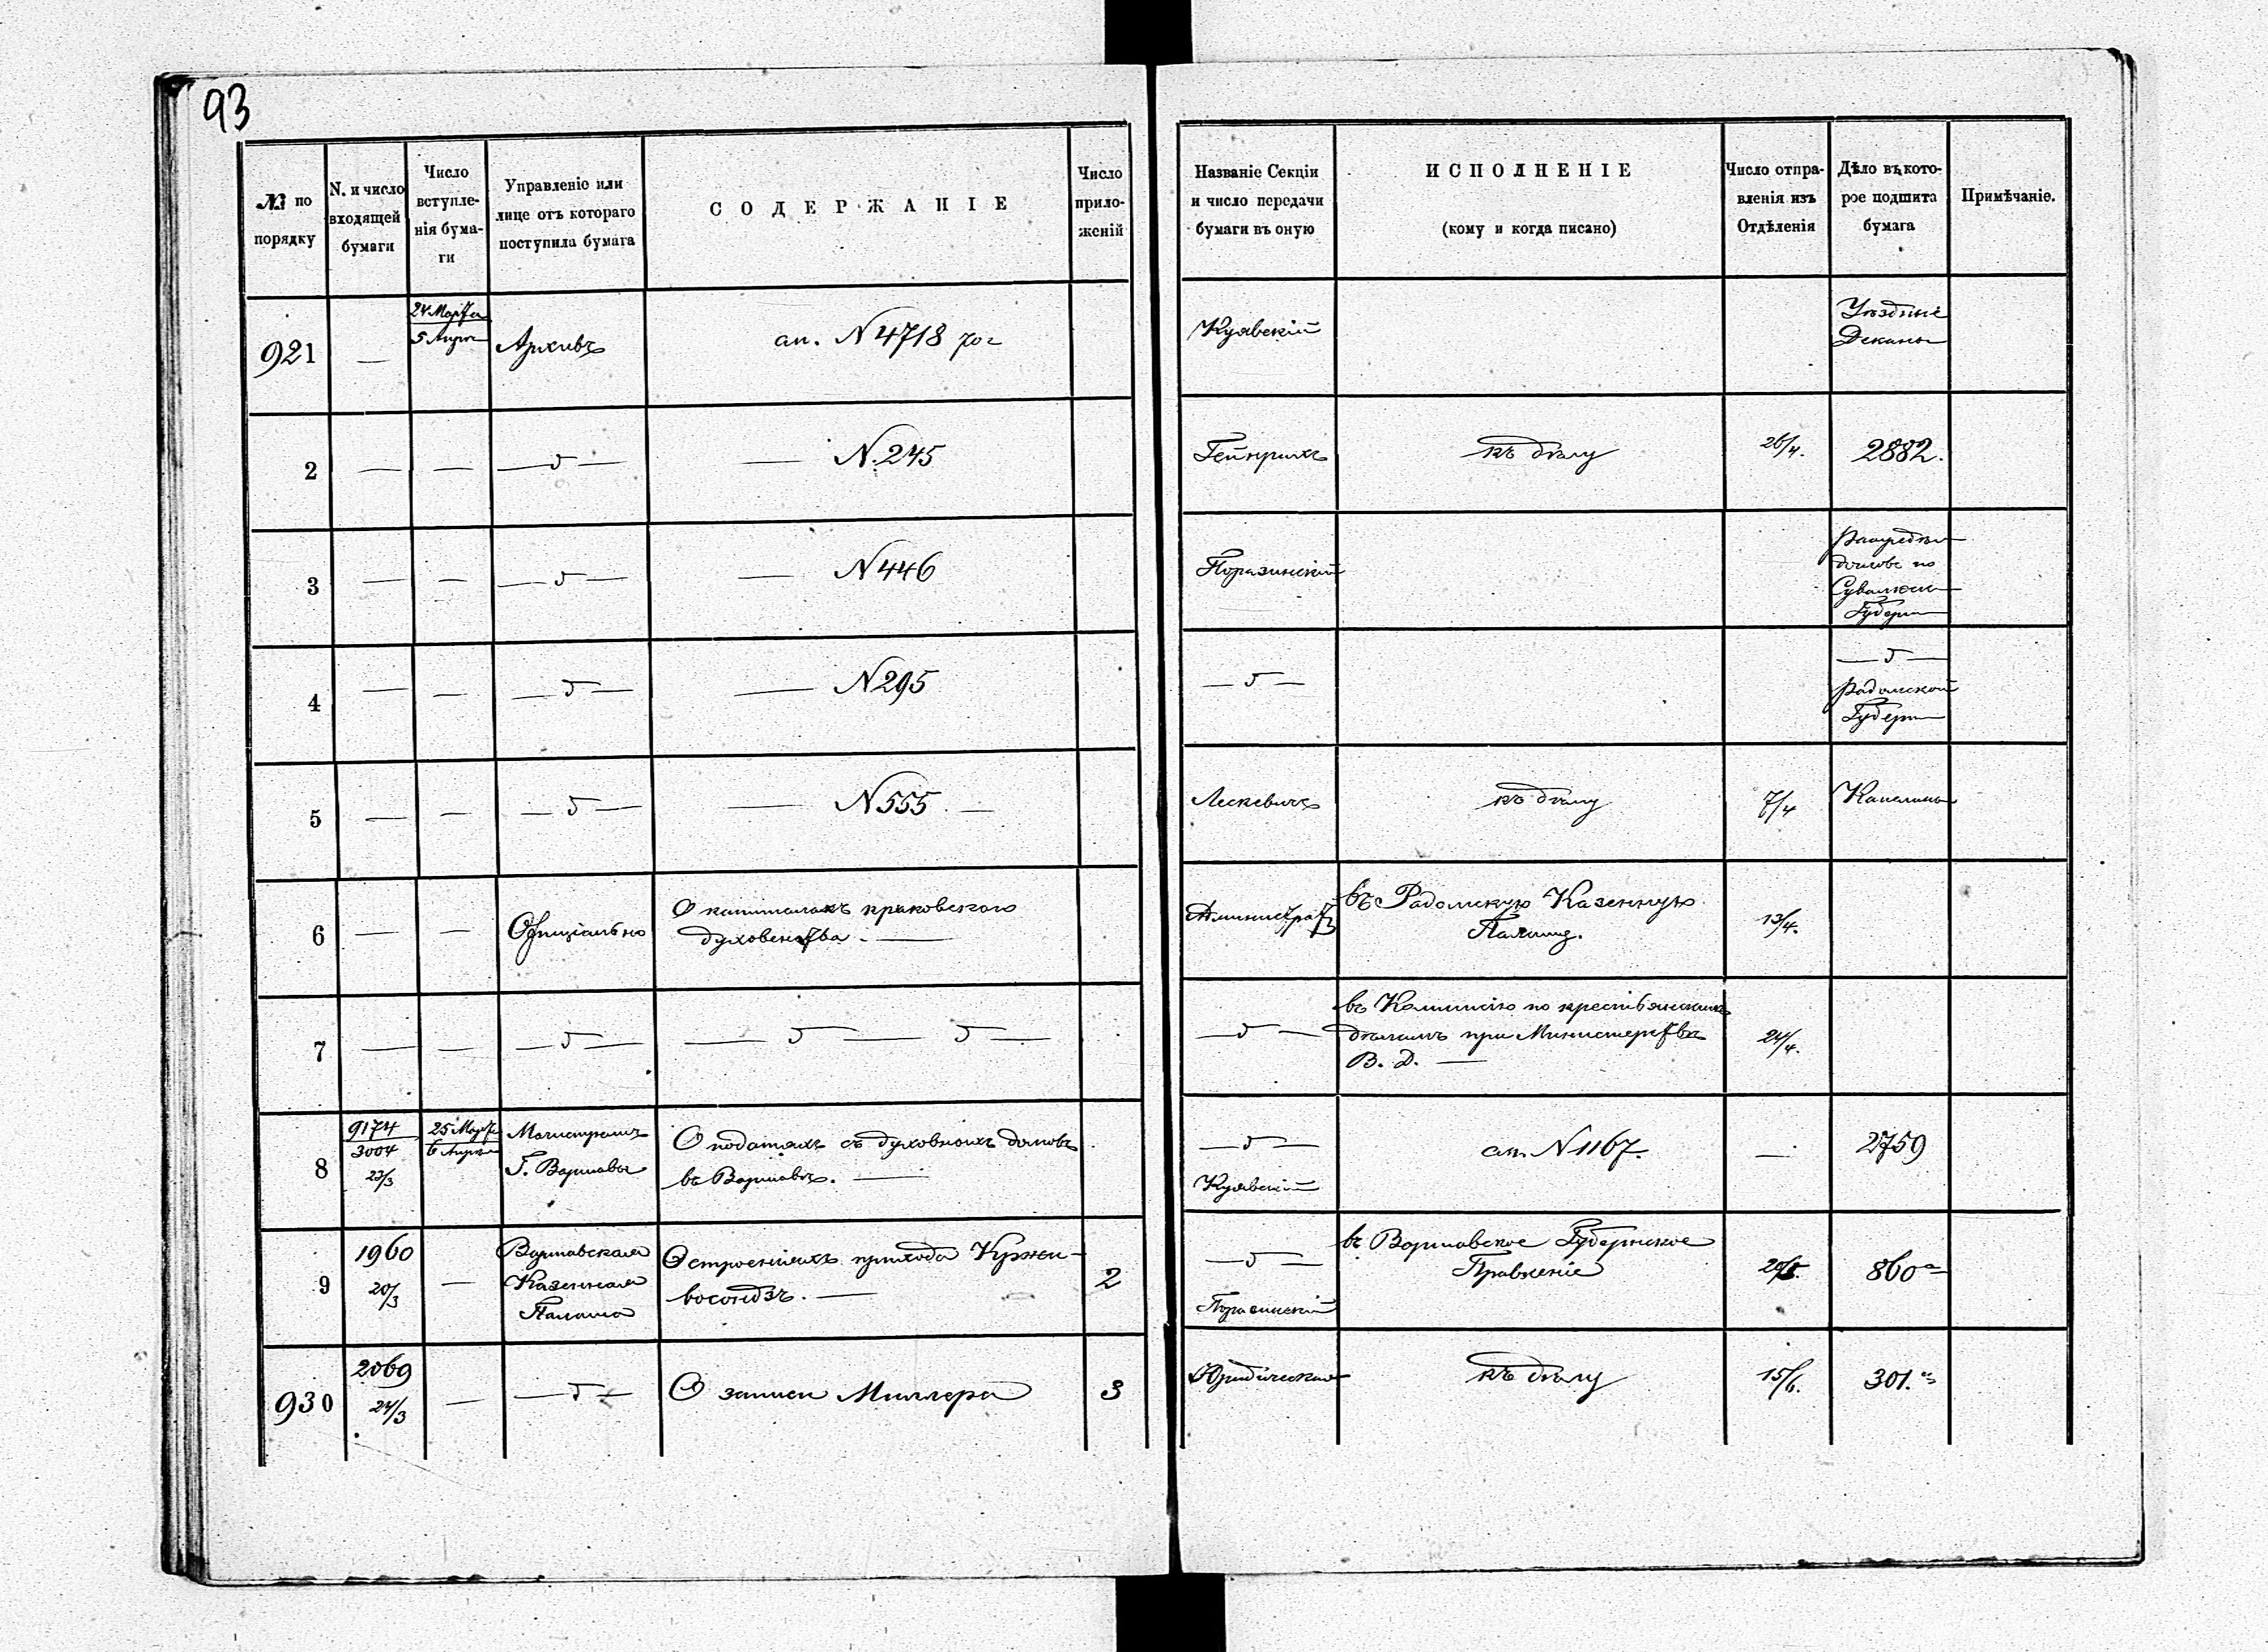 93
№ по порядку
N. и число входящей бумаги
Число вступле-нія бума-ги
Управленіе или лице отъ котораго поступила бумага
СОДЕРЖАНІЕ
Число прило-женій
Названіе Секціи и число передачи бумаги въ оную
ИСПОЛНЕНІЕ
(кому и когда писано)
Число отпра-вленія изъ Отдѣленія
Дѣло въ кото-рое подшита бумага
Примѣчаніе.
921 — 24 Марта / 5 Апр Архивъ ап. N 4718 Куявскій Уѣздные Деканы
2 — — — — N. 245 Гейнрихъ къ дѣлу 26/4. 2882.
3 — — — — N 446 Поразинскій
домовъ по
Сувалкск
Губерн
4 — — — — N 295 — —
Радомской
Губерн
5 — — — — N 555. — Лескевичъ къ дѣлу 7/4
6 — — Офиціально О капиталахъ краковскаго
духовенства. — въ Радомскую Казенную
Палату. 13/4.
7 — — — — — — — въ Коммисію по крестьянскимъ
дѣламъ при Министерствѣ
В. Д. — 24/4.
8 9174 / 3004 23/3 25 Марта / 6 Апрѣл Магистратъ
Г. Варшавы О податяхъ съ духовныхъ домовъ
въ Варшавѣ. — — — Куявскій ап. N 1167. — 2759
9 1960 20/3 — Варшавская
Казенная
Палата О строеніяхъ прихода Кржи-
восондзъ. — 2 — — Поразинскій въ Варшавское Губернское
Правленіе 860
930 2069 24/3 — — — О записи Миллера 3 Юридическая къ дѣлу 15/6. 301.